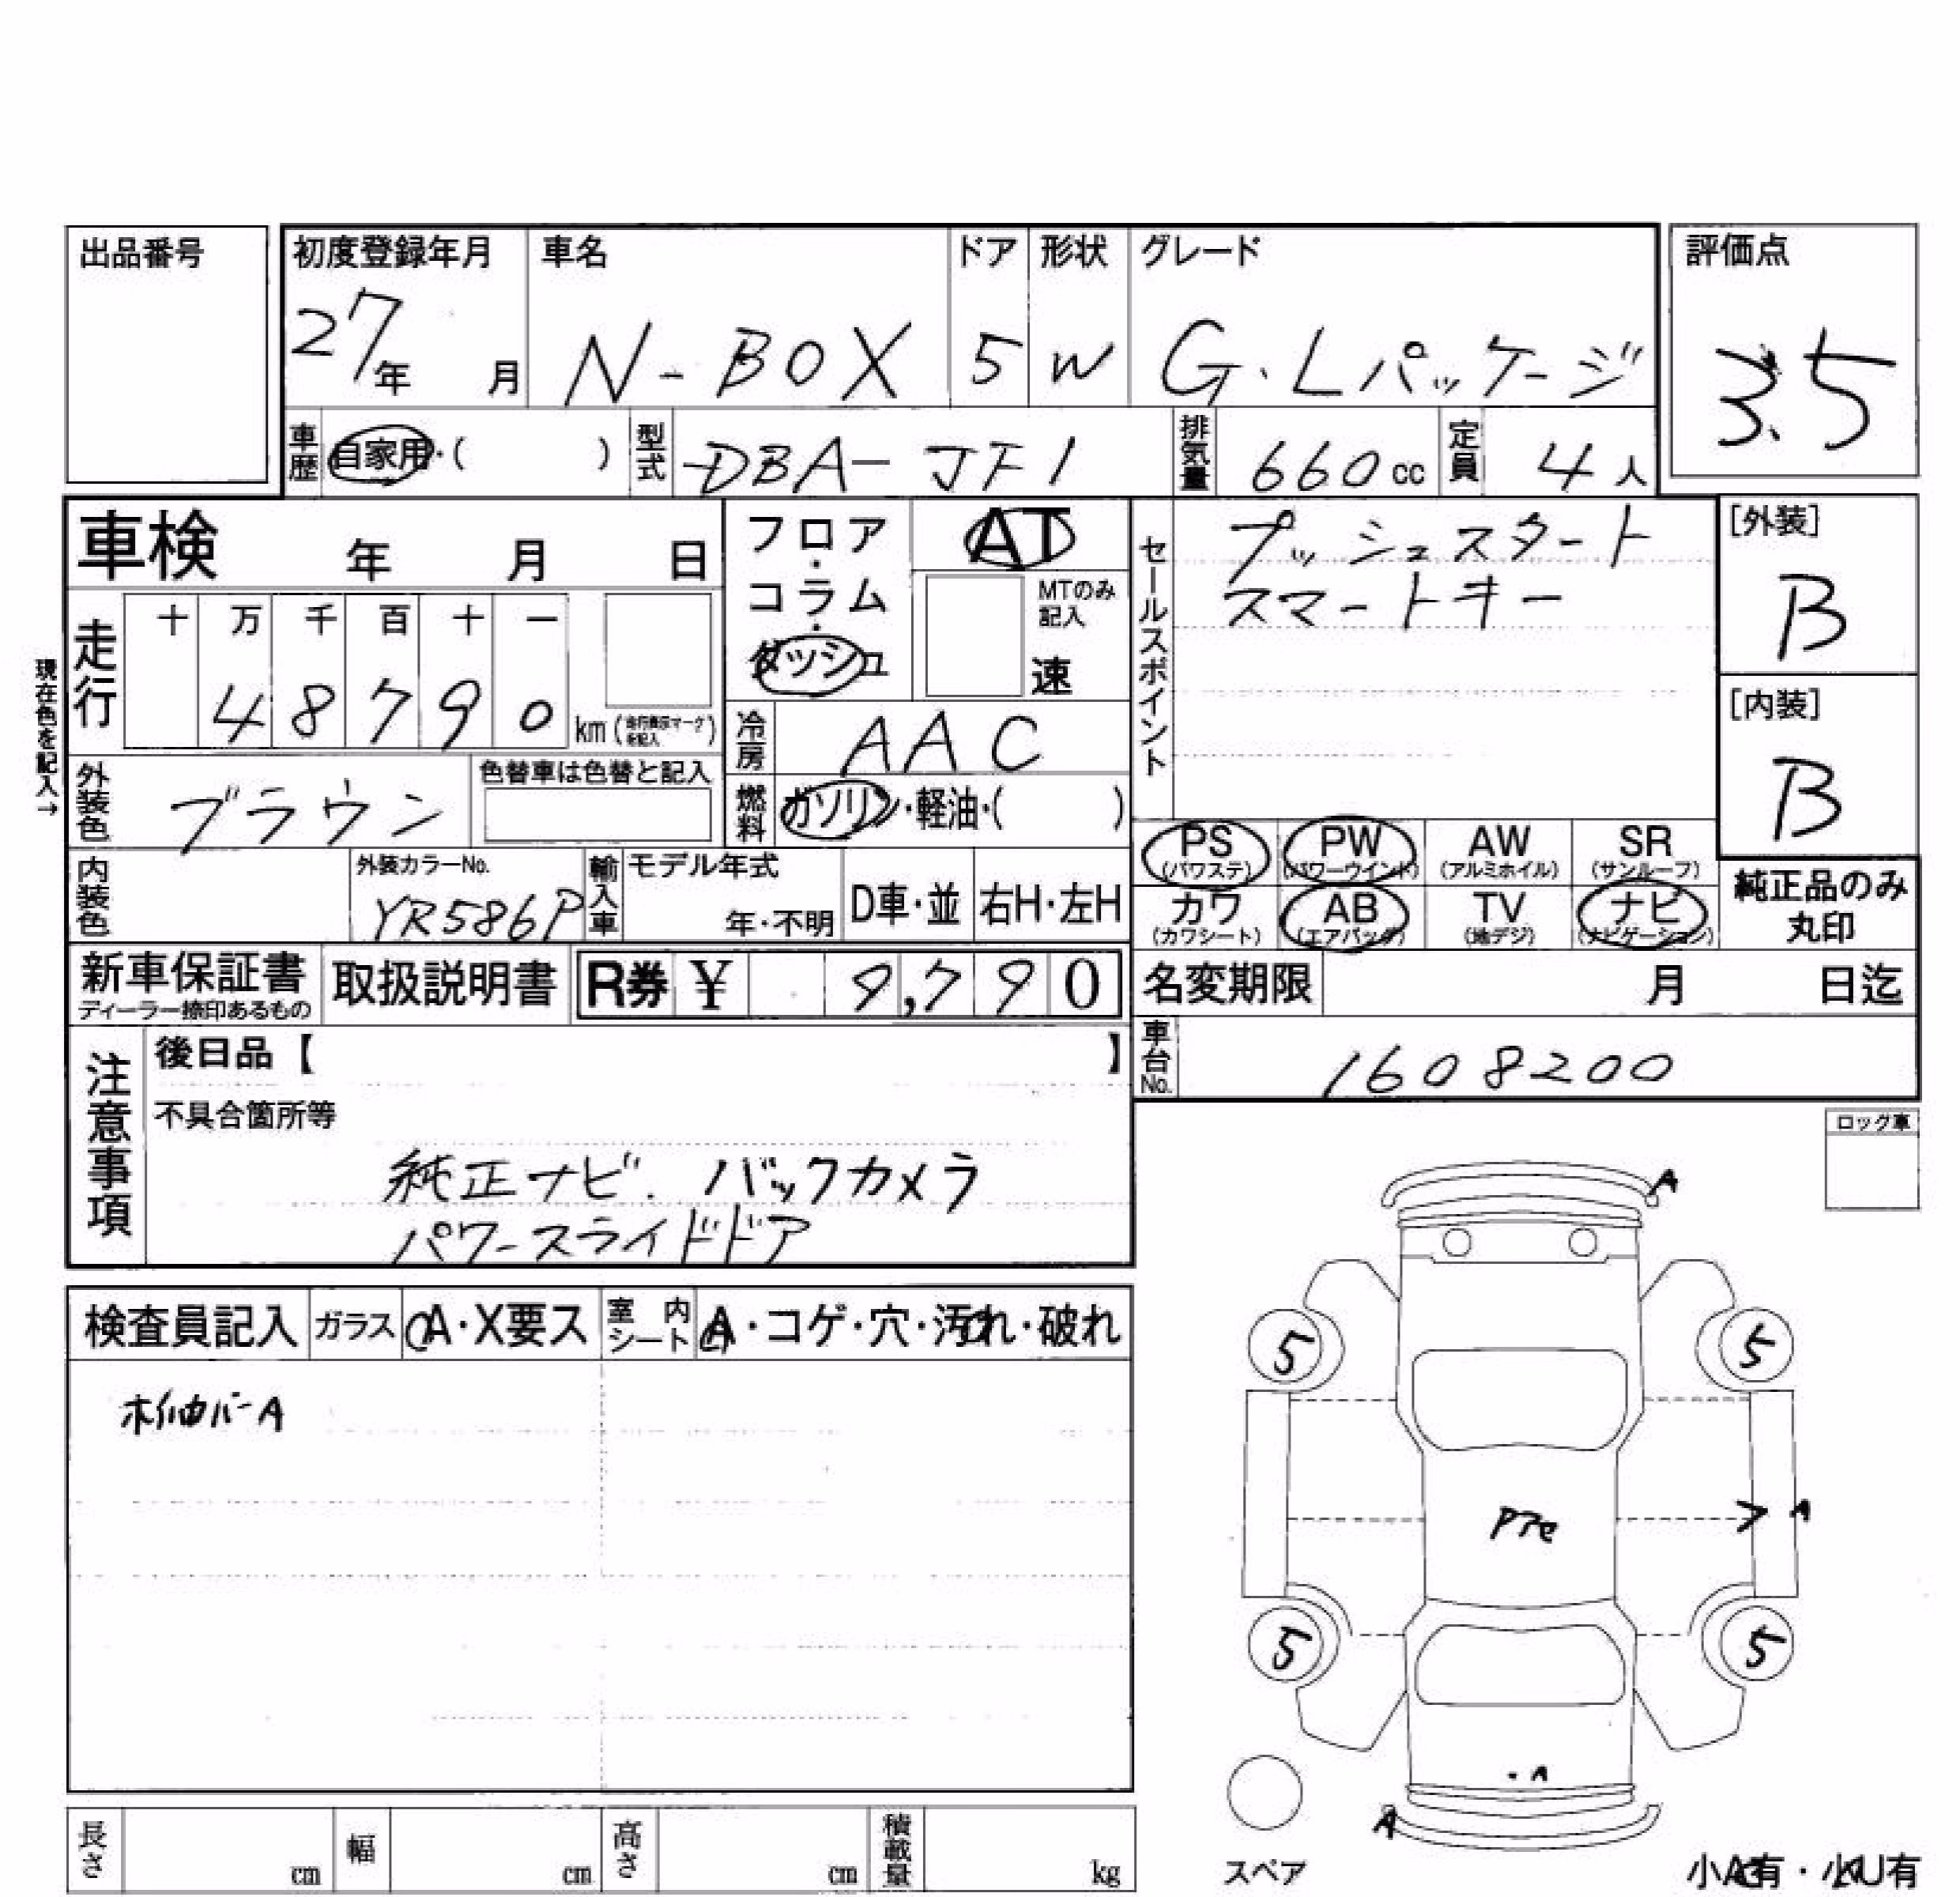 出品番号
初度登録年月 車名 ドア 形状 グレード 評価点
27年 月 N-BOX 5 W G・Lパッケージ 3.5
車歴 自家用・( ) 型式 DBA-JF1 排気量 660cc 定員 4人
車検 年 月 日
フロア・コラム・ダッシュ AT
MTのみ記入 速
セールスポイント
プッシュスタート
スマートキー
[外装]
B
[内装]
B
現在色を記入→
走行 十 万 千 百 十 一
48790 km
冷房 AAC
外装色 ブラウン 色替車は色替と記入
燃料 ガソリン・軽油・( )
PS PW AW SR
(パワステ) (パワーウインド) (アルミホイル) (サンルーフ)
カワ AB TV ナビ
(カワシート) (エアバッグ) (地デジ) (ナビゲーション)
純正品のみ
丸印
内装色 外装カラーNo. YR586P 輸入車 モデル年式 年・不明 D車・並 右H・左H
新車保証書 取扱説明書 R券 ¥ 9,790
ディーラー捺印あるもの
名変期限 月 日迄
車台No. 1608200
注意事項
後日品【 】
不具合箇所等
純正ナビ. バックカメラ
パワースライドドア
ロック車
検査員記入 ガラス A・X要ス 室内シート A・コゲ・穴・汚れ・破れ
A
A
5 5
A
5 5
A
A
スペア
長さ cm 幅 cm 高さ cm 積載量 kg
小A有・小U有